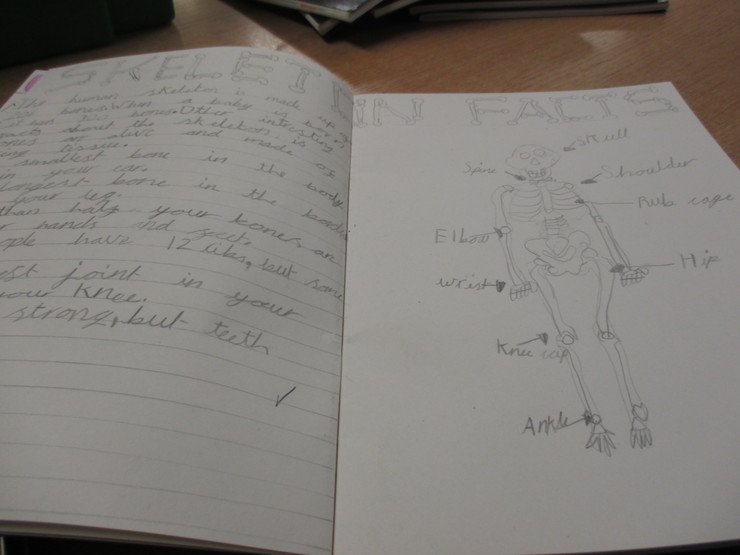 SKELETIN FACTS
The human skeleton is made up of
bones. When a baby is born
it has 300 bones. Other interesting
facts about the skeleton is
alive and made of
tissue.
smallest bone in the body
in your ear.
longest bone in the
your leg.
than half your bones are
hands and feet.
have 12 ribs, but some
joint in your
your knee.
strong, but teeth
Skull
Spine
Shoulder
Rub cage
Elbow
Hip
wrist
Knee cap
Ankle